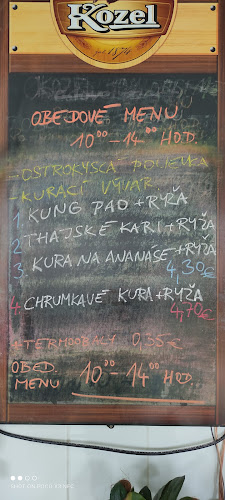 Kozel
1874
OBEDOVÉ MENU
10⁰⁰-14⁰⁰ HOD.
- OSTROKYSLÁ POLIEVKA
- KURACÍ VÝVAR
1 KUNG PAO + RYŽA
2 THAJSKÉ KARI + RYŽA
3 KURA NA ANANÁSE + RYŽA
4,30€
4 CHRUMKAVÉ KURA + RYŽA
4,70€
* TERMOOBALY 0,35€
OBED. MENU 10⁰⁰-14⁰⁰ HOD